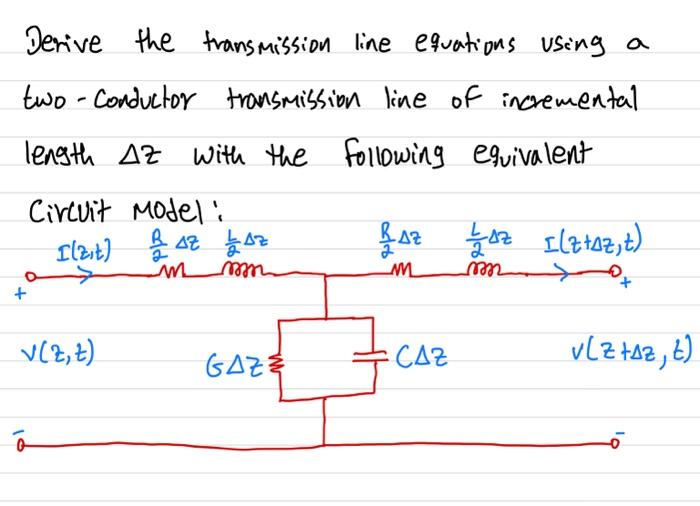 Derive the transmission line equations using a
two-conductor transmission line of incremental
length ΔZ with the following equivalent
Circuit Model:
I(z,t) R/2 ΔZ L/2 ΔZ R/2 ΔZ L/2 ΔZ I(z+Δz,t)
+ +
V(z,t) GΔZ CΔZ V(z+Δz,t)
- -